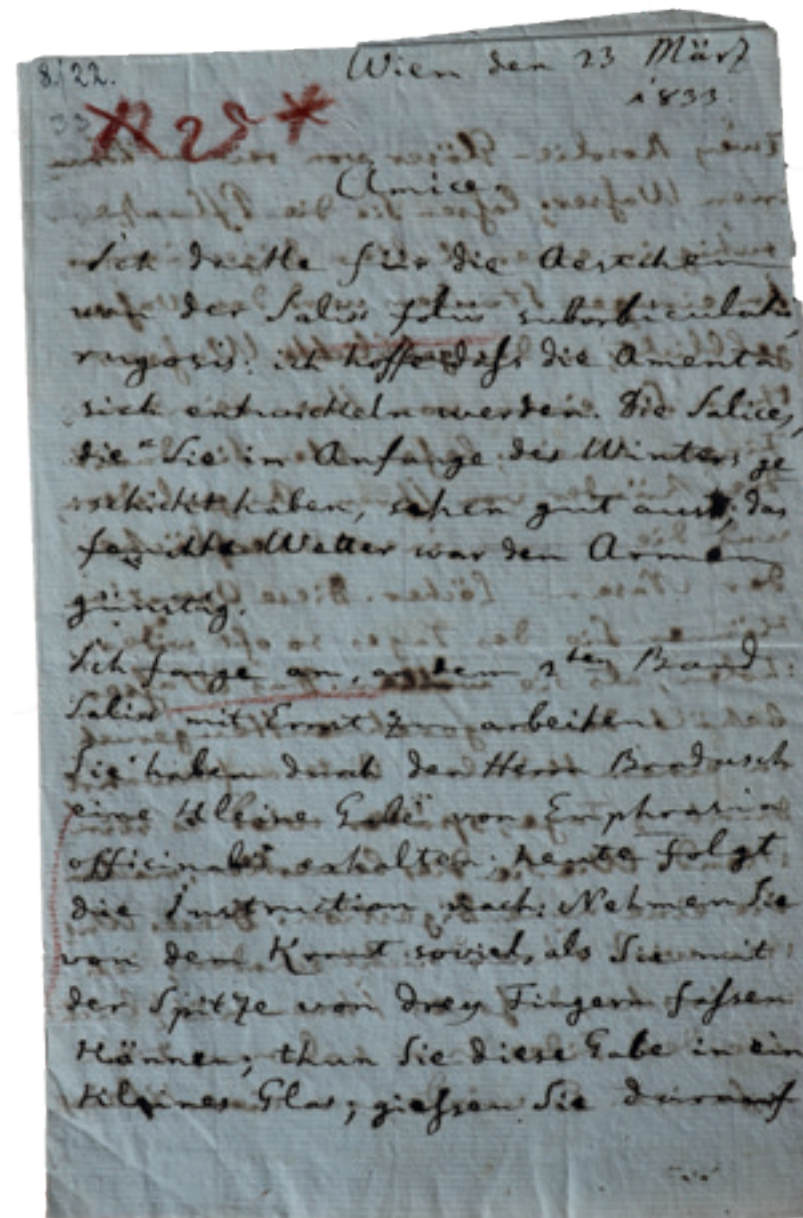 8./22.
Wien den 23 März
1833.
33 25
Amice.
Ich danke für die Aestchen
von der Salix foliis suborbiculatis,
rugosis: ich hoffe dafs die Amenta
sich entwickeln werden. Die Salices,
die Sie im Anfange des Winters ge
schickt haben, sehen gut aus; das
feuchte Wetter war den Armen
günstig.
Ich fange an, an dem 2ten Band
Salix mit Ernst zu arbeiten
Sie haben durch den Herrn
eine kleine Gabe von Euphrasia
officinalis erhalten; heute folgt
die Instruction nach: Nehmen Sie
von dem Kraut soviel, als Sie mit
der Spitze von drey Fingern fafsen
können; thun Sie diese Gabe in ein
kleines Glas; giefsen Sie darauf